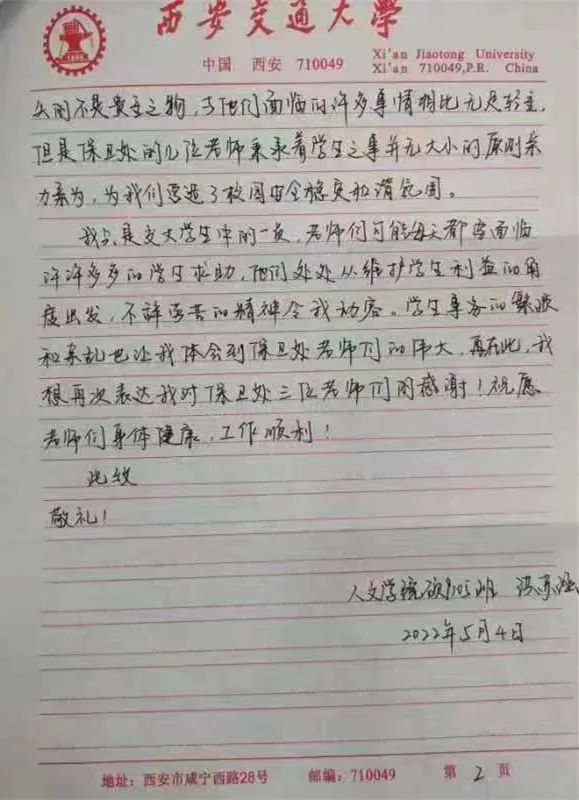 西安交通大学
中国 西安 710049
Xi'an Jiaotong University
Xi'an 710049,P.R. China
失的不是贵重之物，与他们面临的许多事情相比无足轻重，
但是保卫处的几位老师秉承着学生之事并无大小的原则亲
力亲为，为我们营造了校园安全稳定和谐氛围。
我只是交大学生中的一员，老师们可能每天都要面临
许许多多的学生求助，他们处处从维护学生利益的角
度出发，不辞辛苦的精神令我动容。学生事务的繁琐
和杂乱也让我体会到保卫处老师们的伟大，再在此，我
想再次表达我对保卫处三位老师们的感谢！祝愿
老师们身体健康，工作顺利！
此致
敬礼！
人文学院硕9105班
2022年5月4日
地址：西安市咸宁西路28号 邮编：710049 第 2 页